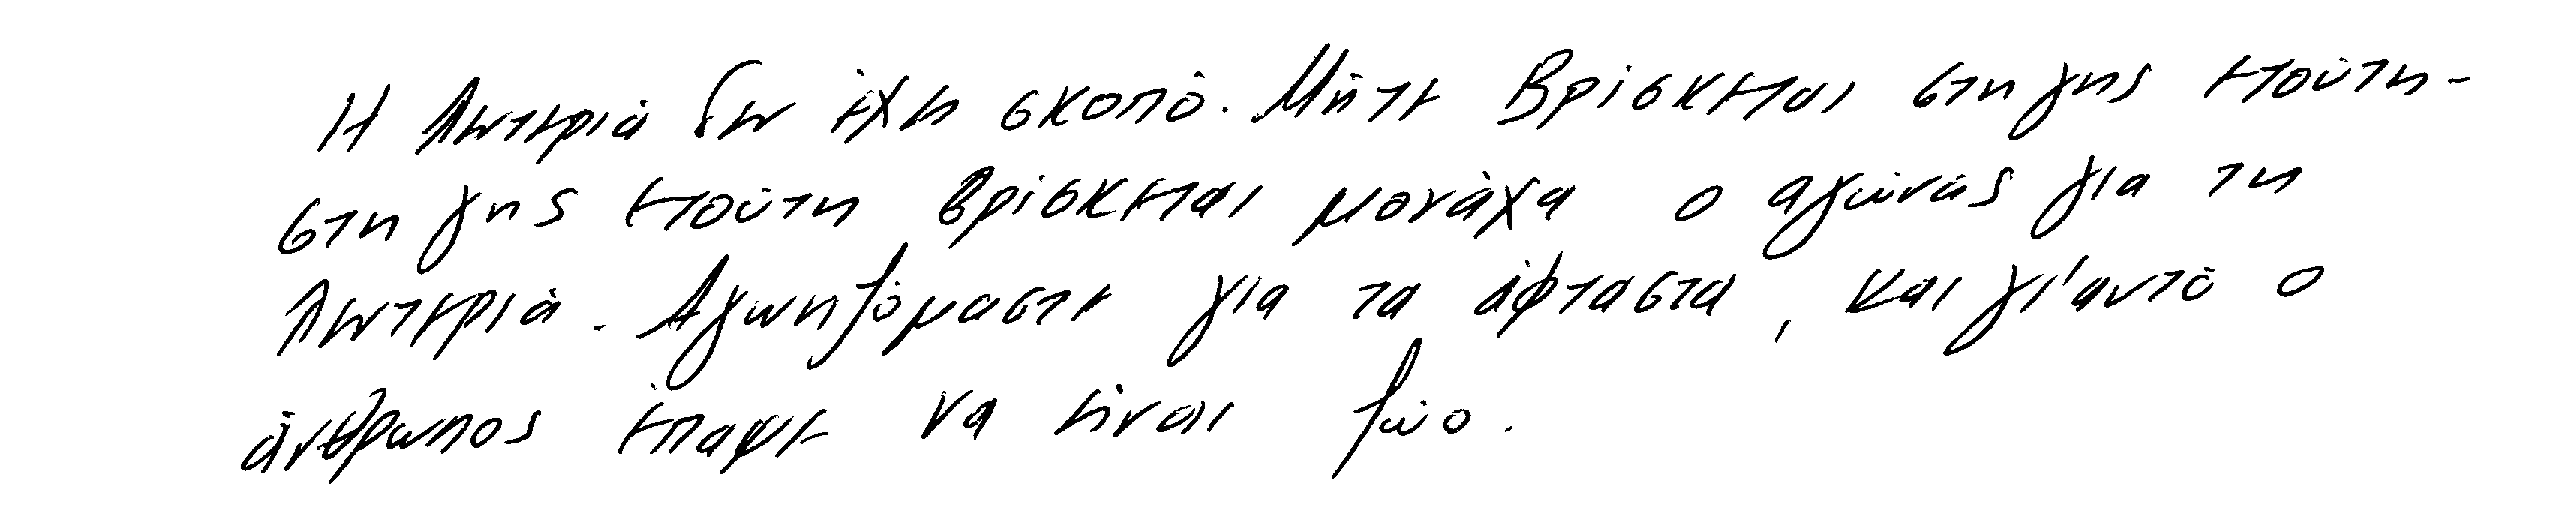 Η λευτεριά δεν έχει σκοπό. Μήτε βρίσκεται στη γης ετούτη-
στη γης ετούτη βρίσκεται μονάχα ο αγώνας για τη
λευτεριά. Αγωνιζόμαστε για τα άφταστα, και γι'αυτό ο
άνθρωπος έπαψε να είναι ζώο.